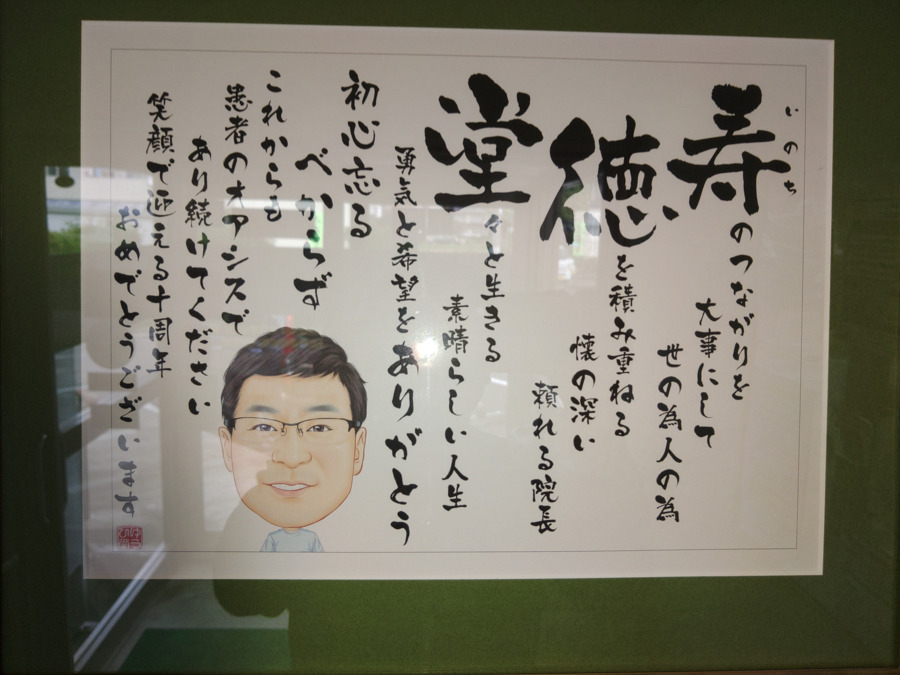 いのち
寿のつながりを
大事にして
世の為人の為
徳を積み重ねる
懐の深い
頼れる院長
堂々と生きる
素晴らしい人生
勇気と希望をありがとう
初心忘る
べからず
これからも
患者のオアシスで
あり続けてください
笑顔で迎える十周年
おめでとうございます